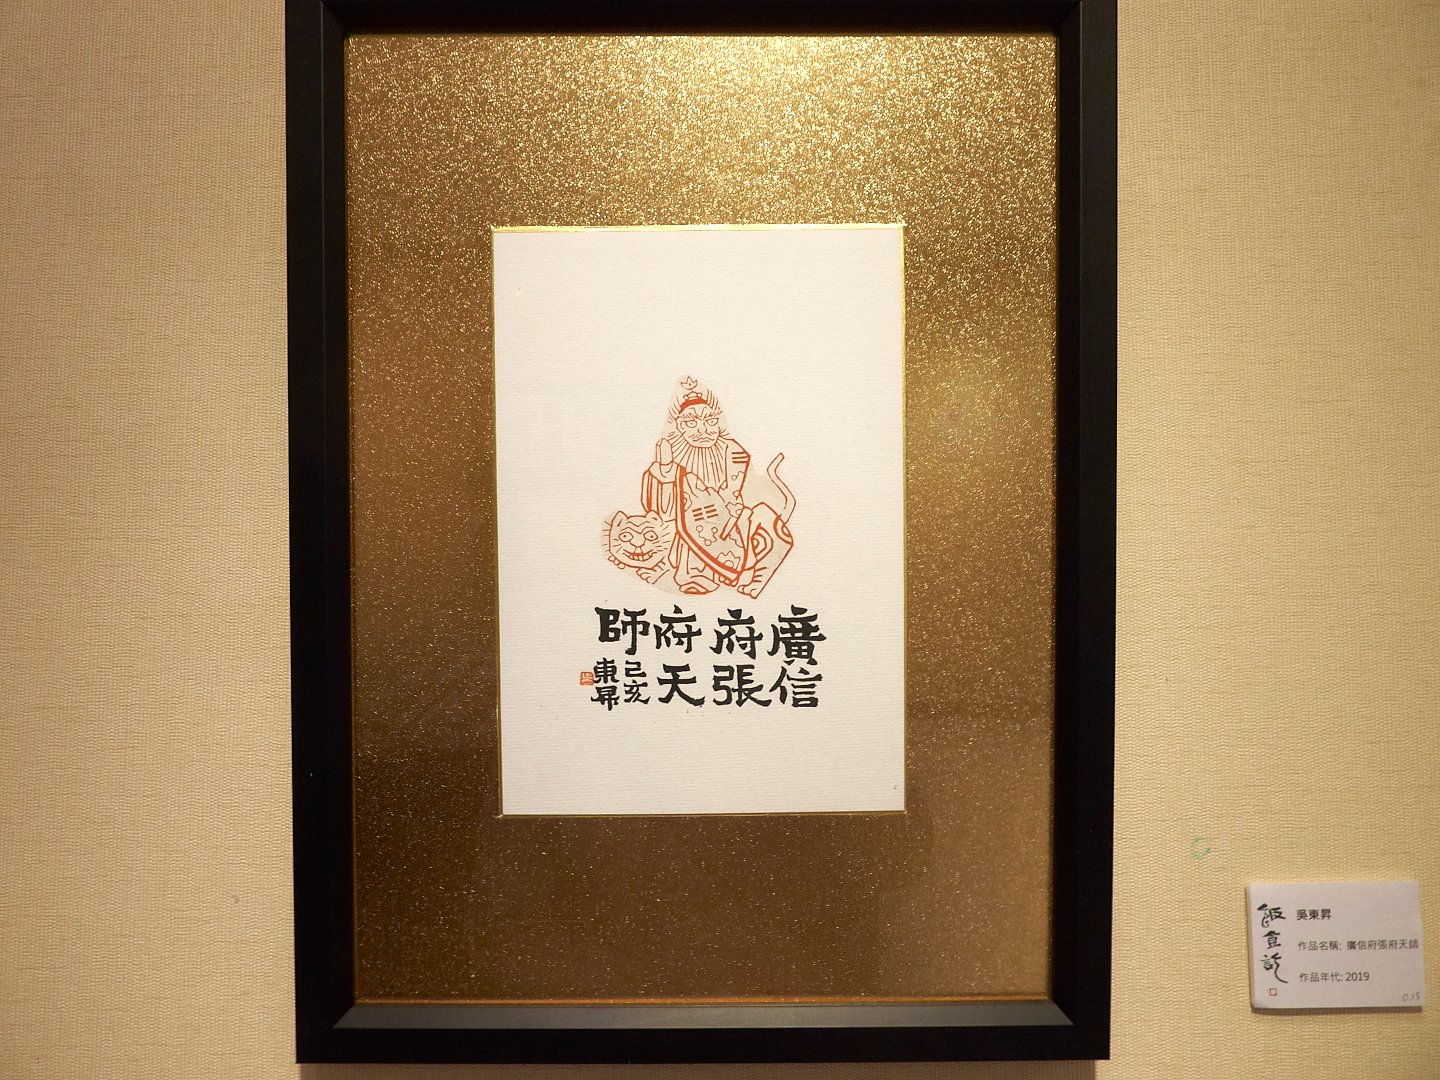 廣信
府張
府天
師
己亥
東昇
飯宜訖
吳東昇
作品名稱: 廣信府張府天師
作品年代: 2019
0.15